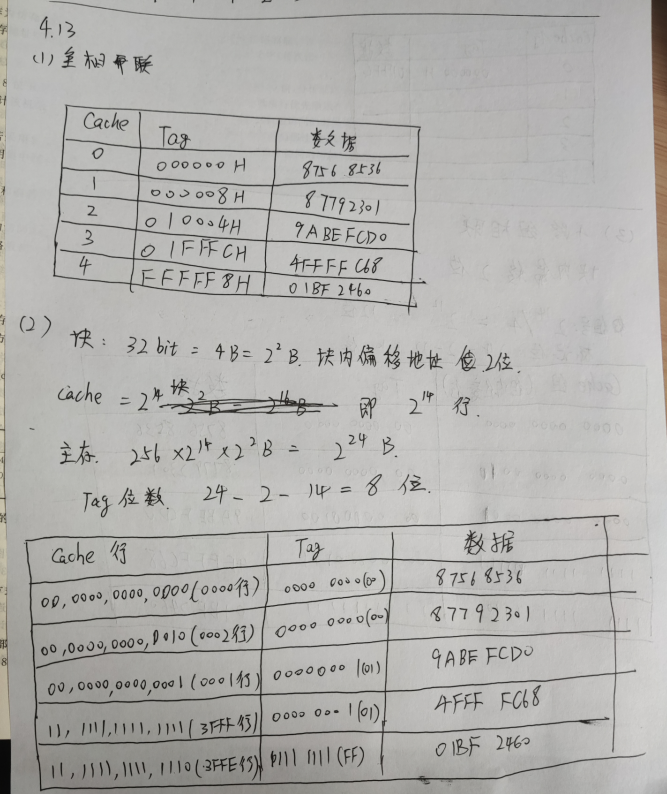 4.13
(1) 全相联
Cache Tag 数据
0 000000H 8756 8536
1 000008H 87792301
2 010004H 9ABEFCD0
3 01FFFCH 4FFFFC68
4 FFFFF8H 01BF 2460
(2) 块: 32bit = 4B = 2² B. 块内偏移地址 值 2位.
Cache = 2¹⁴ 块 即 2¹⁴ 行.
主存. 256 × 2¹⁴ × 2² B = 2²⁴ B.
Tag 位数 24 - 2 - 14 = 8 位.
Cache 行 Tag 数据
00,0000,0000,0000(0000行) 0000 0000(00) 8756 8536
00,0000,0000,0010(0002行) 0000 0000(00) 87792301
00,0000,0000,0001(0001行) 0000000 1(01) 9ABE FCD0
11,1111,1111,1111(3FFF行) 0000 000 1(01) 4FFF FC68
11,1111,1111,1110(3FFE行) 1111 1111(FF) 01BF 2460